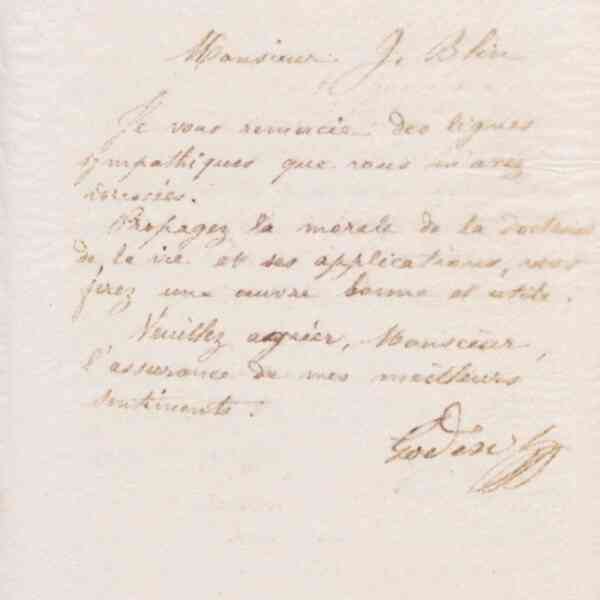 Monsieur J. Blin
Je vous remercie des lignes
sympathiques que vous m'avez
envoyées.
Propagez la morale de la doctrine
de la vie et ses applications, vous
ferez une œuvre bonne et utile.
Veuillez agréer, Monsieur,
l'assurance de mes meilleurs
sentiments.
Godin